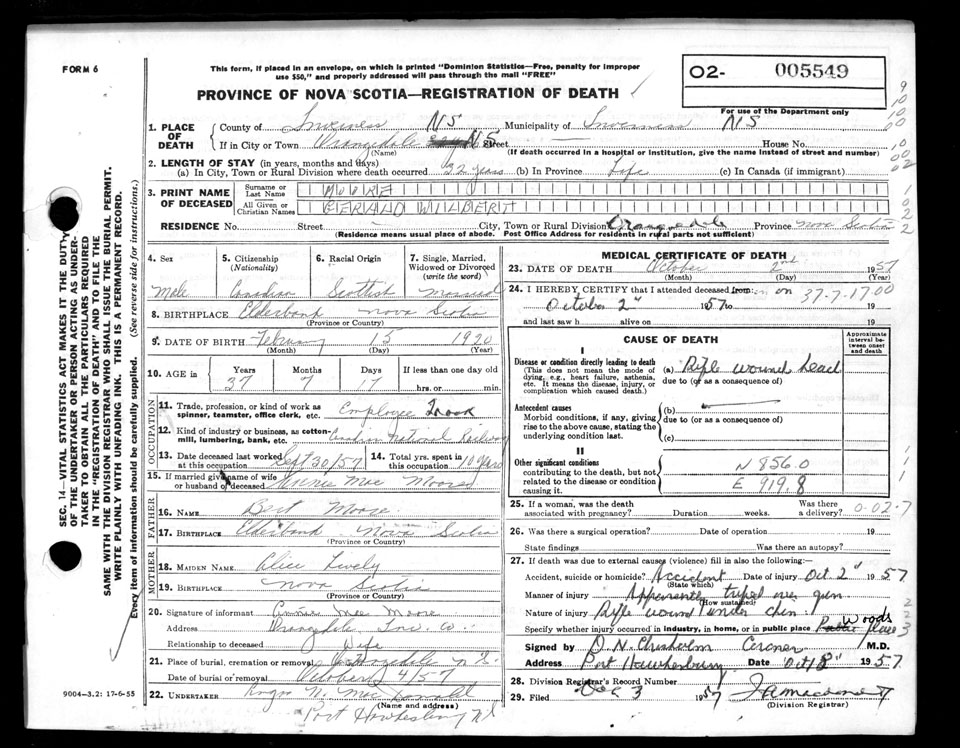 FORM 6
This form, if placed in an envelope, on which is printed "Dominion Statistics—Free, penalty for improper
use $50," and properly addressed will pass through the mail "FREE"
O2- 005549
For use of the Department only
PROVINCE OF NOVA SCOTIA—REGISTRATION OF DEATH
1. PLACE OF DEATH
County of Inverness NS Municipality of Inverness NS
If in City or Town Orangedale NS Street House No.
(Name) (If death occurred in a hospital or institution, give the name instead of street and number)
2. LENGTH OF STAY (in years, months and days)
(a) In City, Town or Rural Division where death occurred 32 years (b) In Province Life (c) In Canada (if immigrant)
3. PRINT NAME OF DECEASED
Surname or Last Name MOORE
All Given or Christian Names GERALD WILBERT
RESIDENCE No. Street City, Town or Rural Division Orangedale Province Nova Scotia
(Residence means usual place of abode. Post Office Address for residents in rural parts not sufficient)
4. Sex 5. Citizenship (Nationality) 6. Racial Origin 7. Single, Married, Widowed or Divorced (write the word)
Male Canadian Scottish Married
8. BIRTHPLACE Elderbank Nova Scotia
(Province or Country)
9. DATE OF BIRTH February 15 1920
(Month) (Day) (Year)
10. AGE Years Months Days If less than one day old
37 7 17 hrs. or min.
OCCUPATION
11. Trade, profession, or kind of work as spinner, teamster, office clerk, etc. Employee
12. Kind of industry or business, as cotton-mill, lumbering, bank, etc. Canadian National Railway
13. Date deceased last worked at this occupation Sept 30/57 14. Total yrs. spent in this occupation 10 years
15. If married give name of wife or husband of deceased Annie Mae Moore
FATHER
16. NAME Bert Moore
17. BIRTHPLACE Elderbank Nova Scotia
(Province or Country)
MOTHER
18. MAIDEN NAME Alice Lively
19. BIRTHPLACE Nova Scotia
(Province or Country)
20. Signature of informant Annie Mae Moore
Address Orangedale Inv. Co.
Relationship to deceased Wife
21. Place of burial, cremation or removal Orangedale N S
Date of burial or removal October 4/57
22. UNDERTAKER
Port Hawkesbury NS
(Name and address)
9004-3.2: 17-6-55
MEDICAL CERTIFICATE OF DEATH
23. DATE OF DEATH October 2nd 1957
(Month) (Day) (Year)
24. I HEREBY CERTIFY that I attended deceased from: on 37-7-17.00
October 2" 1957 to 19
and last saw h alive on 19
CAUSE OF DEATH
Approximate interval between onset and death
I
Disease or condition directly leading to death
(This does not mean the mode of dying, e.g., heart failure, asthenia, etc. It means the disease, injury, or complication which caused death.)
(a) Rifle wound head
due to (or as a consequence of)
Antecedent causes
Morbid conditions, if any, giving rise to the above cause, stating the underlying condition last.
(b)
due to (or as a consequence of)
(c)
II
Other significant conditions
contributing to the death, but not related to the disease or condition causing it.
N 856.0
E 919.8
25. If a woman, was the death associated with pregnancy? Duration weeks. Was there a delivery? 0-02-7
26. Was there a surgical operation? Date of operation 19
State findings Was there an autopsy?
27. If death was due to external causes (violence) fill in also the following:
Accident, suicide or homicide? Accident Date of injury Oct 2" 1957
(State which)
Manner of injury Apparently triped over gun
(How sustained)
Nature of injury Rifle wound under chin
Specify whether injury occurred in industry, in home, or in public place Woods
Signed by D N Chisholm Coroner M.D.
Address Port Hawkesbury Date Oct 8" 1957
28. Division Registrar's Record Number
29. Filed Dec 3 1957
(Division Registrar)
SEC. 14—VITAL STATISTICS ACT MAKES IT THE DUTY
OF THE UNDERTAKER OR PERSON ACTING AS UNDER-
TAKER TO OBTAIN ALL THE PARTICULARS REQUIRED
IN THE "REGISTRATION OF DEATH" AND TO FILE THE
SAME WITH THE DIVISION REGISTRAR WHO SHALL ISSUE THE BURIAL PERMIT.
WRITE PLAINLY WITH UNFADING INK. THIS IS A PERMANENT RECORD.
Every item of information should be carefully supplied. (See reverse side for instructions.)